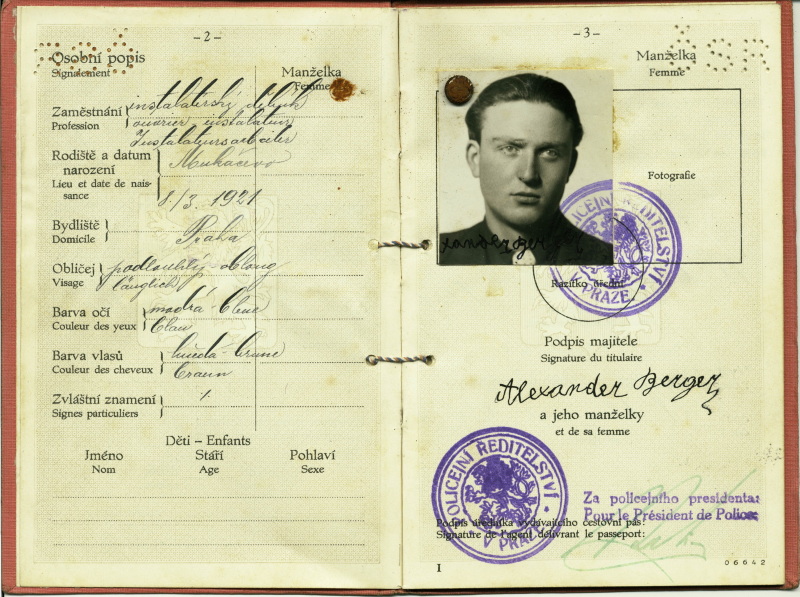 - 2 -
Osobní popis
Signalement
Manželka
Femme
Zaměstnání
Profession
instalatérský dělník
ouvrier instalateur
Instalateursarbeiter
Rodiště a datum
narození
Lieu et date de nais-
sance
Mukačevo
8./3. 1921
Bydliště
Domicile
Praha
Obličej
Visage
podlouhlý-oblong
länglich
Barva očí
Couleur des yeux
modrá-bleue
blau
Barva vlasů
Couleur des cheveux
hnědá-brune
braun
Zvláštní znamení
Signes particuliers
Děti - Enfants
Jméno
Nom
Stáří
Age
Pohlaví
Sexe
- 3 -
Manželka
Femme
Fotografie
xander Ber
POLICEJNÍ ŘEDITELSTVÍ
V PRAZE
Razítko úřední
Podpis majitele
Signature du titulaire
Alexander Berger
a jeho manželky
et de sa femme
POLICEJNÍ ŘEDITELSTVÍ
V PRAZE
Za policejního presidenta:
Pour le Président de Police:
Podpis úředníka vydávajícího cestovní pas:
Signature de l'agent délivrant le passeport:
I
06642